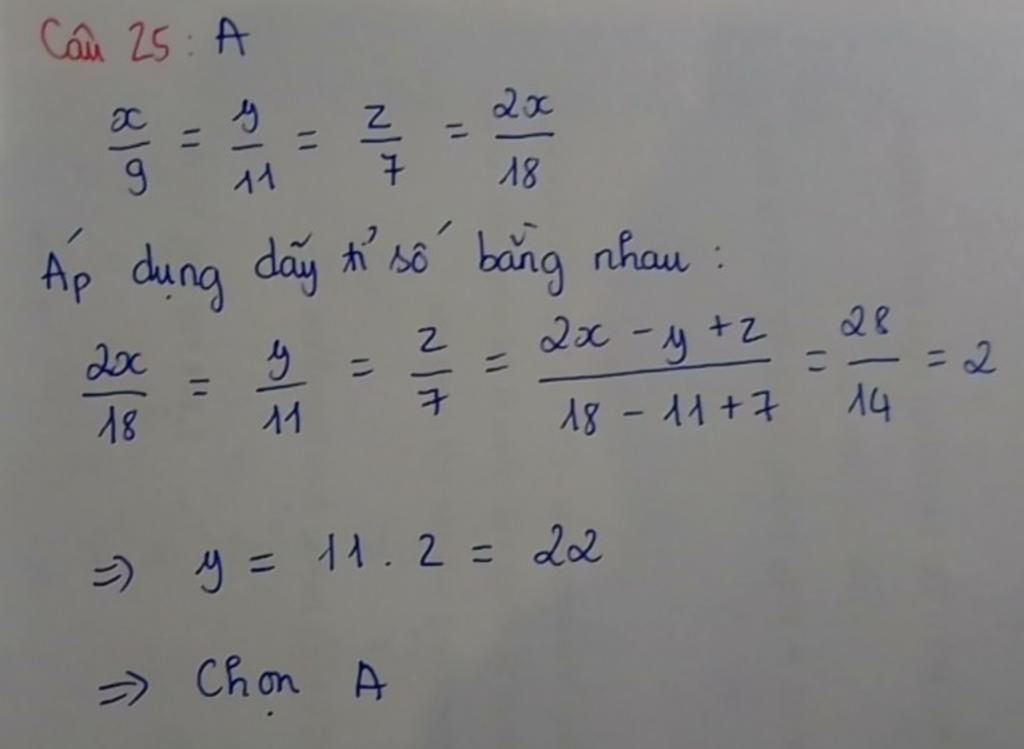 Câu 25: A
x/9 = y/11 = z/7 = 2x/18
Áp dụng dãy tỉ số bằng nhau:
2x/18 = y/11 = z/7 = (2x - y + z)/(18 - 11 + 7) = 28/14 = 2
=> y = 11 . 2 = 22
=> Chọn A